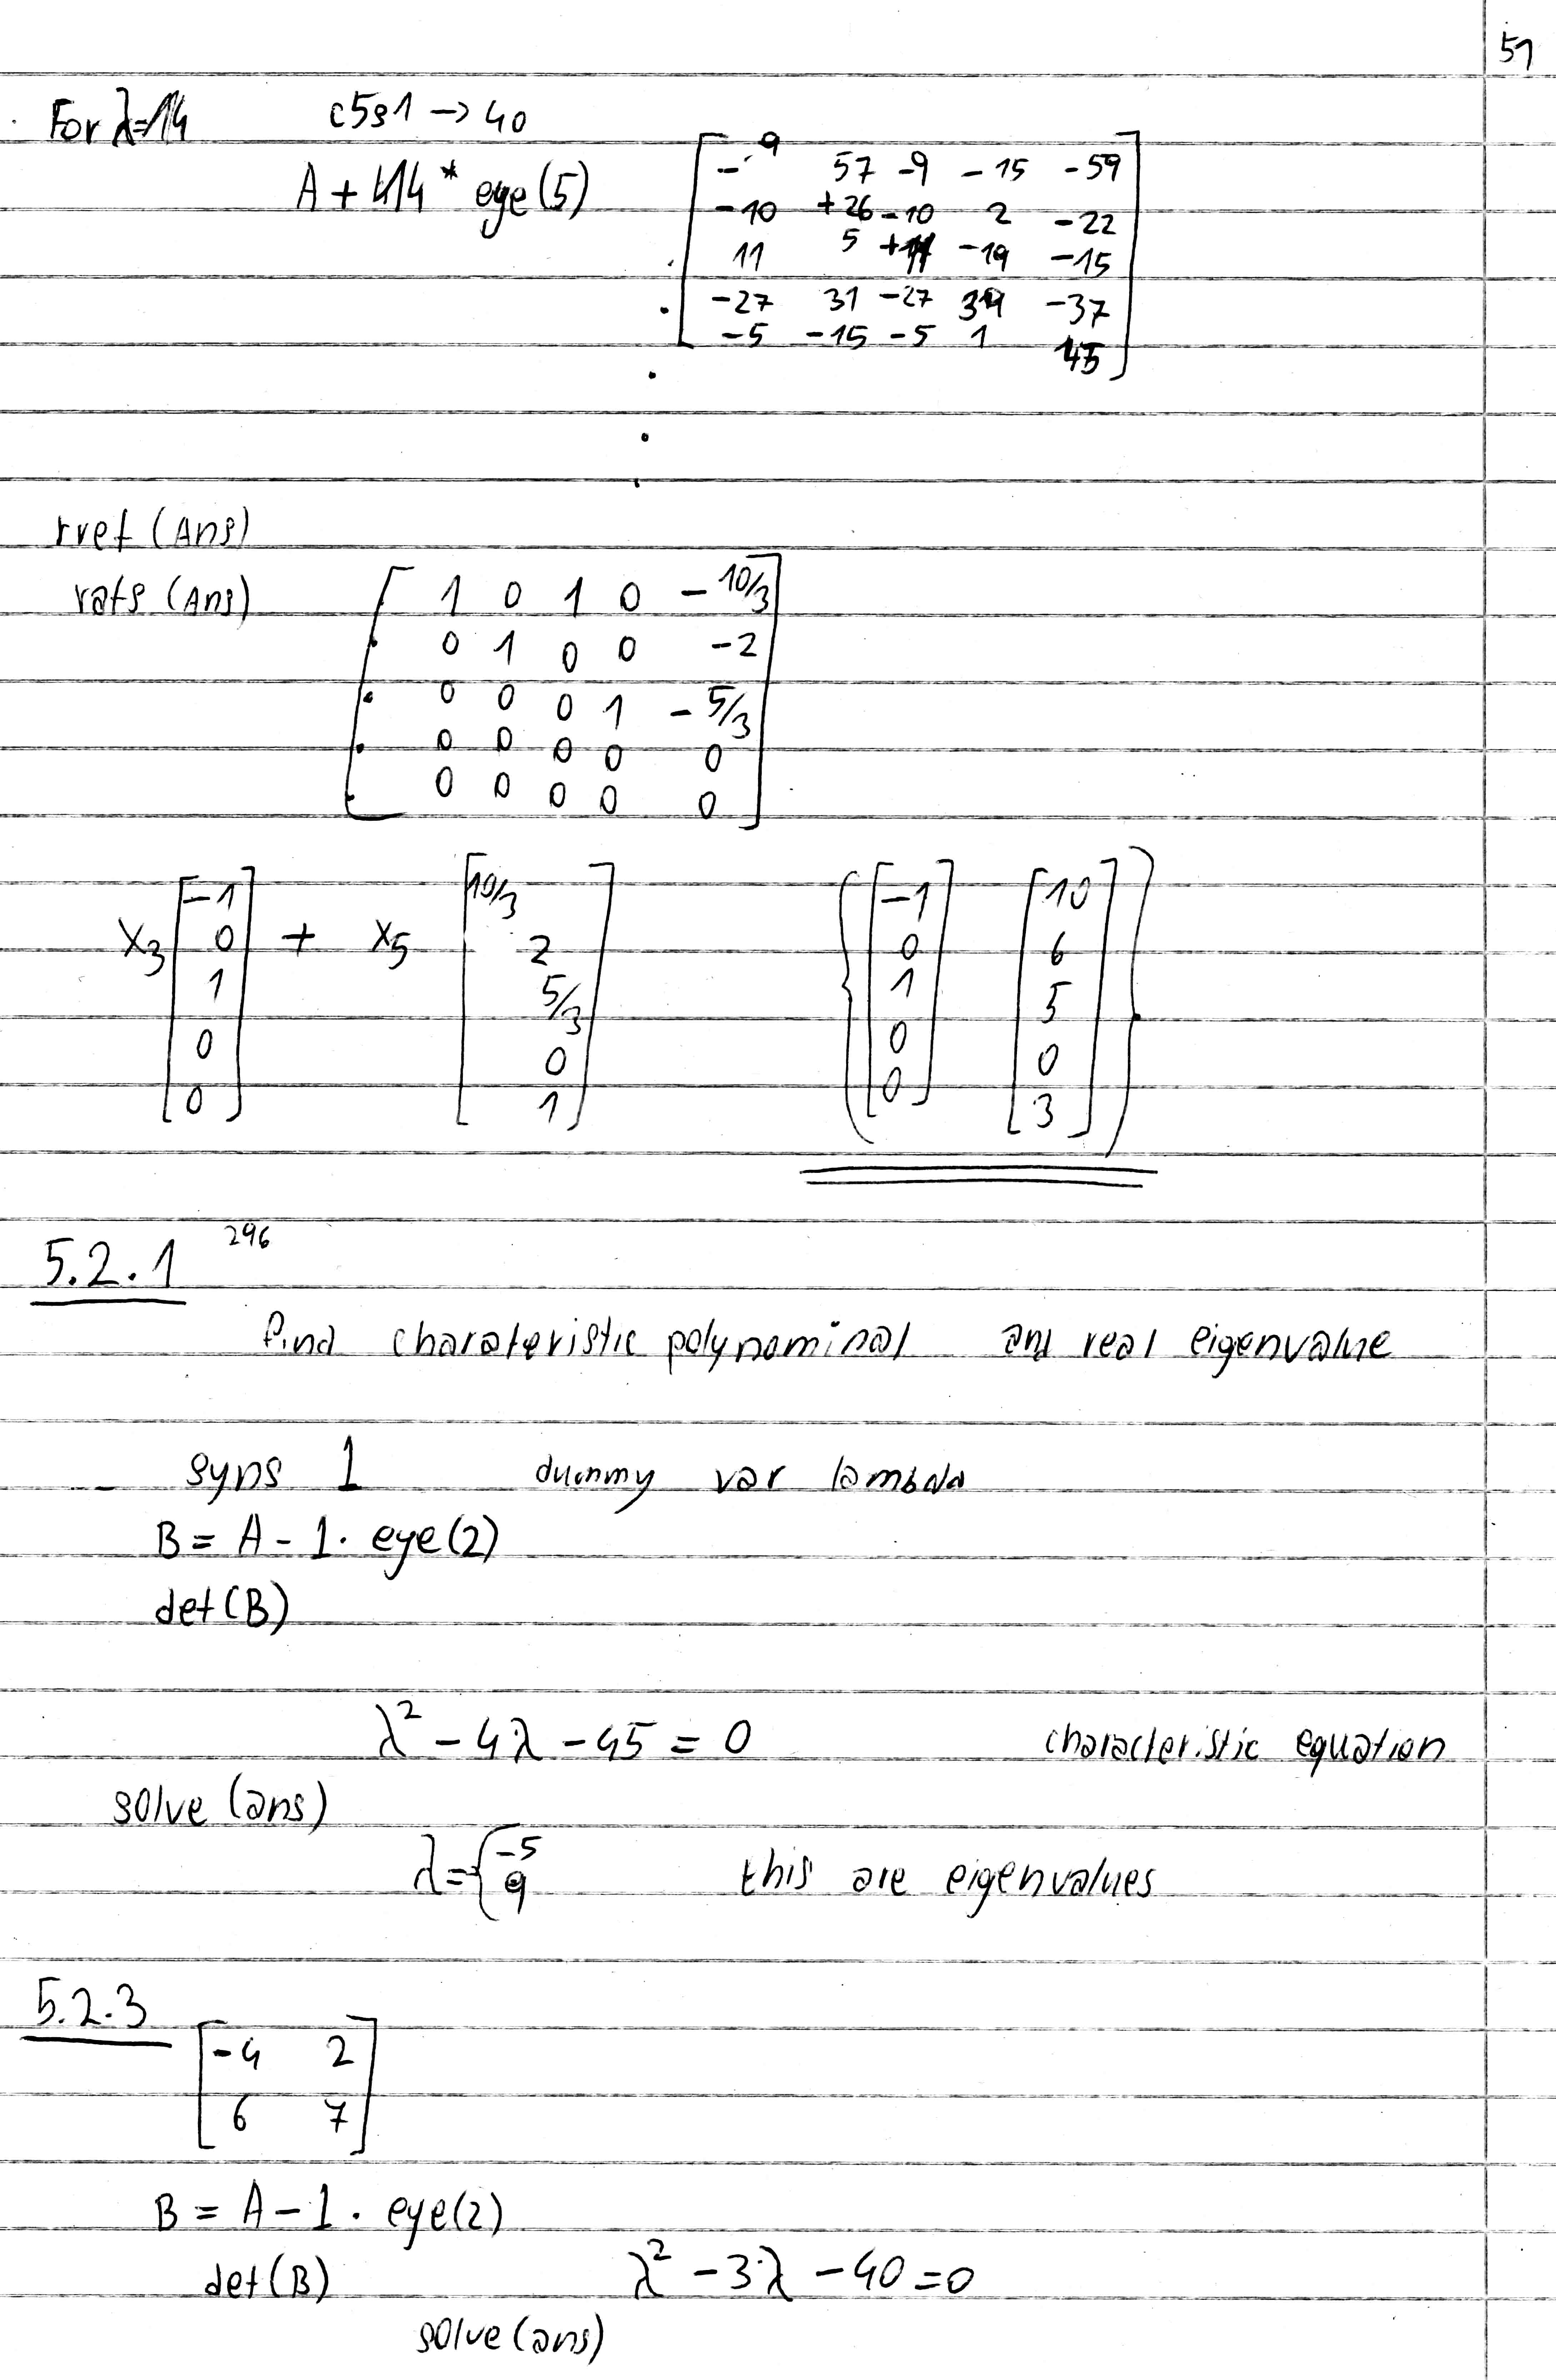 51
For λ=14 c5s1 → 40
A + 14 * eye(5)
-9 57 -9 -15 -59
-10 +26 -10 2 -22
11 5 +11 -19 -15
-27 31 -27 39 -37
-5 -15 -5 1 45
rref (Ans)
rats (Ans)
1 0 1 0 -10/3
0 1 0 0 -2
0 0 0 1 -5/3
0 0 0 0 0
0 0 0 0 0
x3 [-1 0 1 0 0] + x5 [10/3 2 5/3 0 1] {[-1 0 1 0 0] [10 6 5 0 3]}
5.2.1 296
find charateristic polynominal and real eigenvalue
syns l dummy var lambda
B = A - l · eye(2)
det(B)
λ² - 4λ - 45 = 0 characteristic equation
solve (ans)
λ = { -5 9 this are eigenvalues
5.2.3
-4 2
6 7
B = A - l · eye(2)
det(B) λ² - 3λ - 40 = 0
solve (ans)